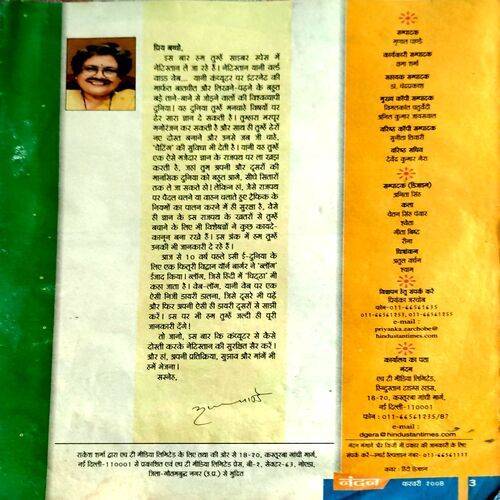 प्रिय बच्चो,
इस बार हम तुम्हें साइबर स्पेस में
नेटिस्तान ले जा रहे हैं। नेटिस्तान यानी वर्ल्ड
वाइड वेब... यानी कंप्यूटर पर इंटरनेट की
मार्फत बातचीत और लिखने-पढ़ने के बहुत
बड़े ताने-बाने से जोड़ने वालों की विश्वव्यापी
दुनिया। यह दुनिया तुम्हें मनचाहे विषयों पर
ढेर सारा ज्ञान दे सकती है। तुम्हारा भरपूर
मनोरंजन कर सकती है और साथ ही तुम्हें ढेरों
नए दोस्त बनाने और इनसे जब जी चाहे,
'चैटिंग' की सुविधा भी देती है। यानी यह तुम्हें
एक ऐसे मजेदार ज्ञान के राजपथ पर ला खड़ा
करती है, जहां तुम अपनी और दूसरों की
मानसिक दुनिया को बहुत आगे, सीधे सितारों
तक ले जा सकते हो। लेकिन हां, जैसे राजपथ
पर पैदल चलने या वाहन चलाते हुए ट्रैफिक के
नियमों का पालन करने में ही सुरक्षा है, वैसे
ही ज्ञान के इस राजपथ के खतरों से तुम्हें
बचाने के लिए भी विशेषज्ञों ने कुछ कायदे-
कानून बना रखे हैं। इस अंक में हम तुम्हें
उनकी भी जानकारी दे रहे हैं।
आज से 10 वर्ष पहले इसी ई-दुनिया के
लिए एक फितूरी विद्वान यॉर्न बार्गर ने 'ब्लॉग'
ईजाद किया। ब्लॉग, जिसे हिंदी में 'चिट्ठा' भी
कहा जाता है। वेब-लॉग, यानी वेब पर एक
ऐसी निजी डायरी डालना, जिसे दूसरे भी पढ़ें
और फिर अपनी ऐसी ही डायरी दूसरों से साझी
करें। इस पर भी हम तुम्हें जल्दी ही पूरी
जानकारी देंगे!
तो जानो, इस बार कि कंप्यूटर से कैसे
दोस्ती करके नेटिस्तान की सुरक्षित सैर करें।
और हां, अपनी प्रतिक्रिया, सुझाव और मांगें भी
हमें भेजना।
सस्नेह,
राकेश शर्मा द्वारा एच टी मीडिया लिमिटेड के लिए तथा की ओर से 18-20, कस्तूरबा गांधी मार्ग,
नई दिल्ली-110001 से प्रकाशित एवं एच टी मीडिया लिमिटेड प्रेस, बी-2, सेक्टर-63, नोएडा,
जिला-गौतमबुद्ध नगर (उ.प्र.) से मुद्रित
संपादक
मृणाल पाण्डे
कार्यकारी संपादक
क्षमा शर्मा
सहायक संपादक
डा. चंद्रप्रकाश
मुख्य कॉपी संपादक
विमलकांत चतुर्वेदी
अनिल कुमार जायसवाल
वरिष्ठ कॉपी संपादक
सुनीता तिवारी
वरिष्ठ सचिव
देवेंद्र कुमार गैरा
संपादक (डिज़ाइन)
अनिता सिंह
कला
चेतन सिंह पंवार
श्वेता
गीता बिष्ट
रीना
चित्रांकन
अतुल वर्धन
श्याम
विज्ञापन हेतु संपर्क करें
प्रियंका जरचोबे
फोन-011-66561635
011-66561253, 011-66561255
e-mail :
priyanka.zarchobe@
hindustantimes.com
कार्यालय का पता
नंदन
एच टी मीडिया लिमिटेड,
हिन्दुस्तान टाइम्स हाउस,
18-20, कस्तूरबा गांधी मार्ग,
नई दिल्ली-110001
फोन : 011-66561235/87
e-mail :
dgera@hindustantimes.com
नंदन मंगाने और किसी भी प्रकार की जानकारी के लिए
नंदन
फरवरी 2008
3